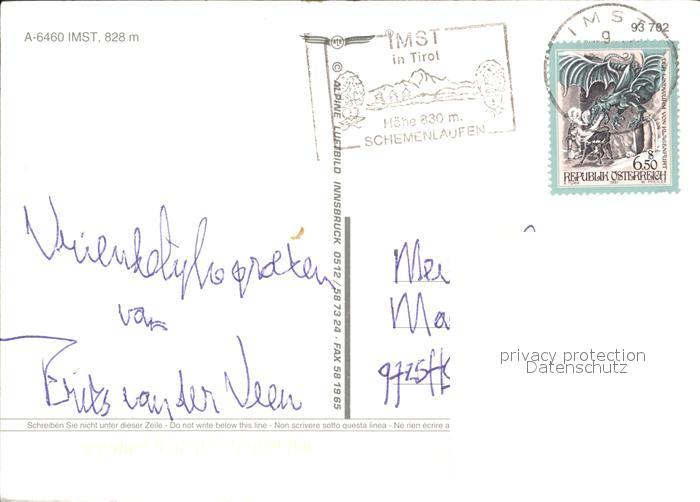 A-6460 IMST, 828 m
IMST
in Tirol
Höhe 830 m.
SCHEMENLAUFEN
IMST
g
93 782
6.50 S
REPUBLIK ÖSTERREICH
© ALPINE LUFTBILD INNSBRUCK 0512 / 58 73 24 · FAX 58 19 65
Vriendelijke groeten
van
Frits van der Veen
privacy protection
Datenschutz
Schreiben Sie nicht unter dieser Zeile - Do not write below this line - Non scrivere sotto questa linea - Ne rien écrire a